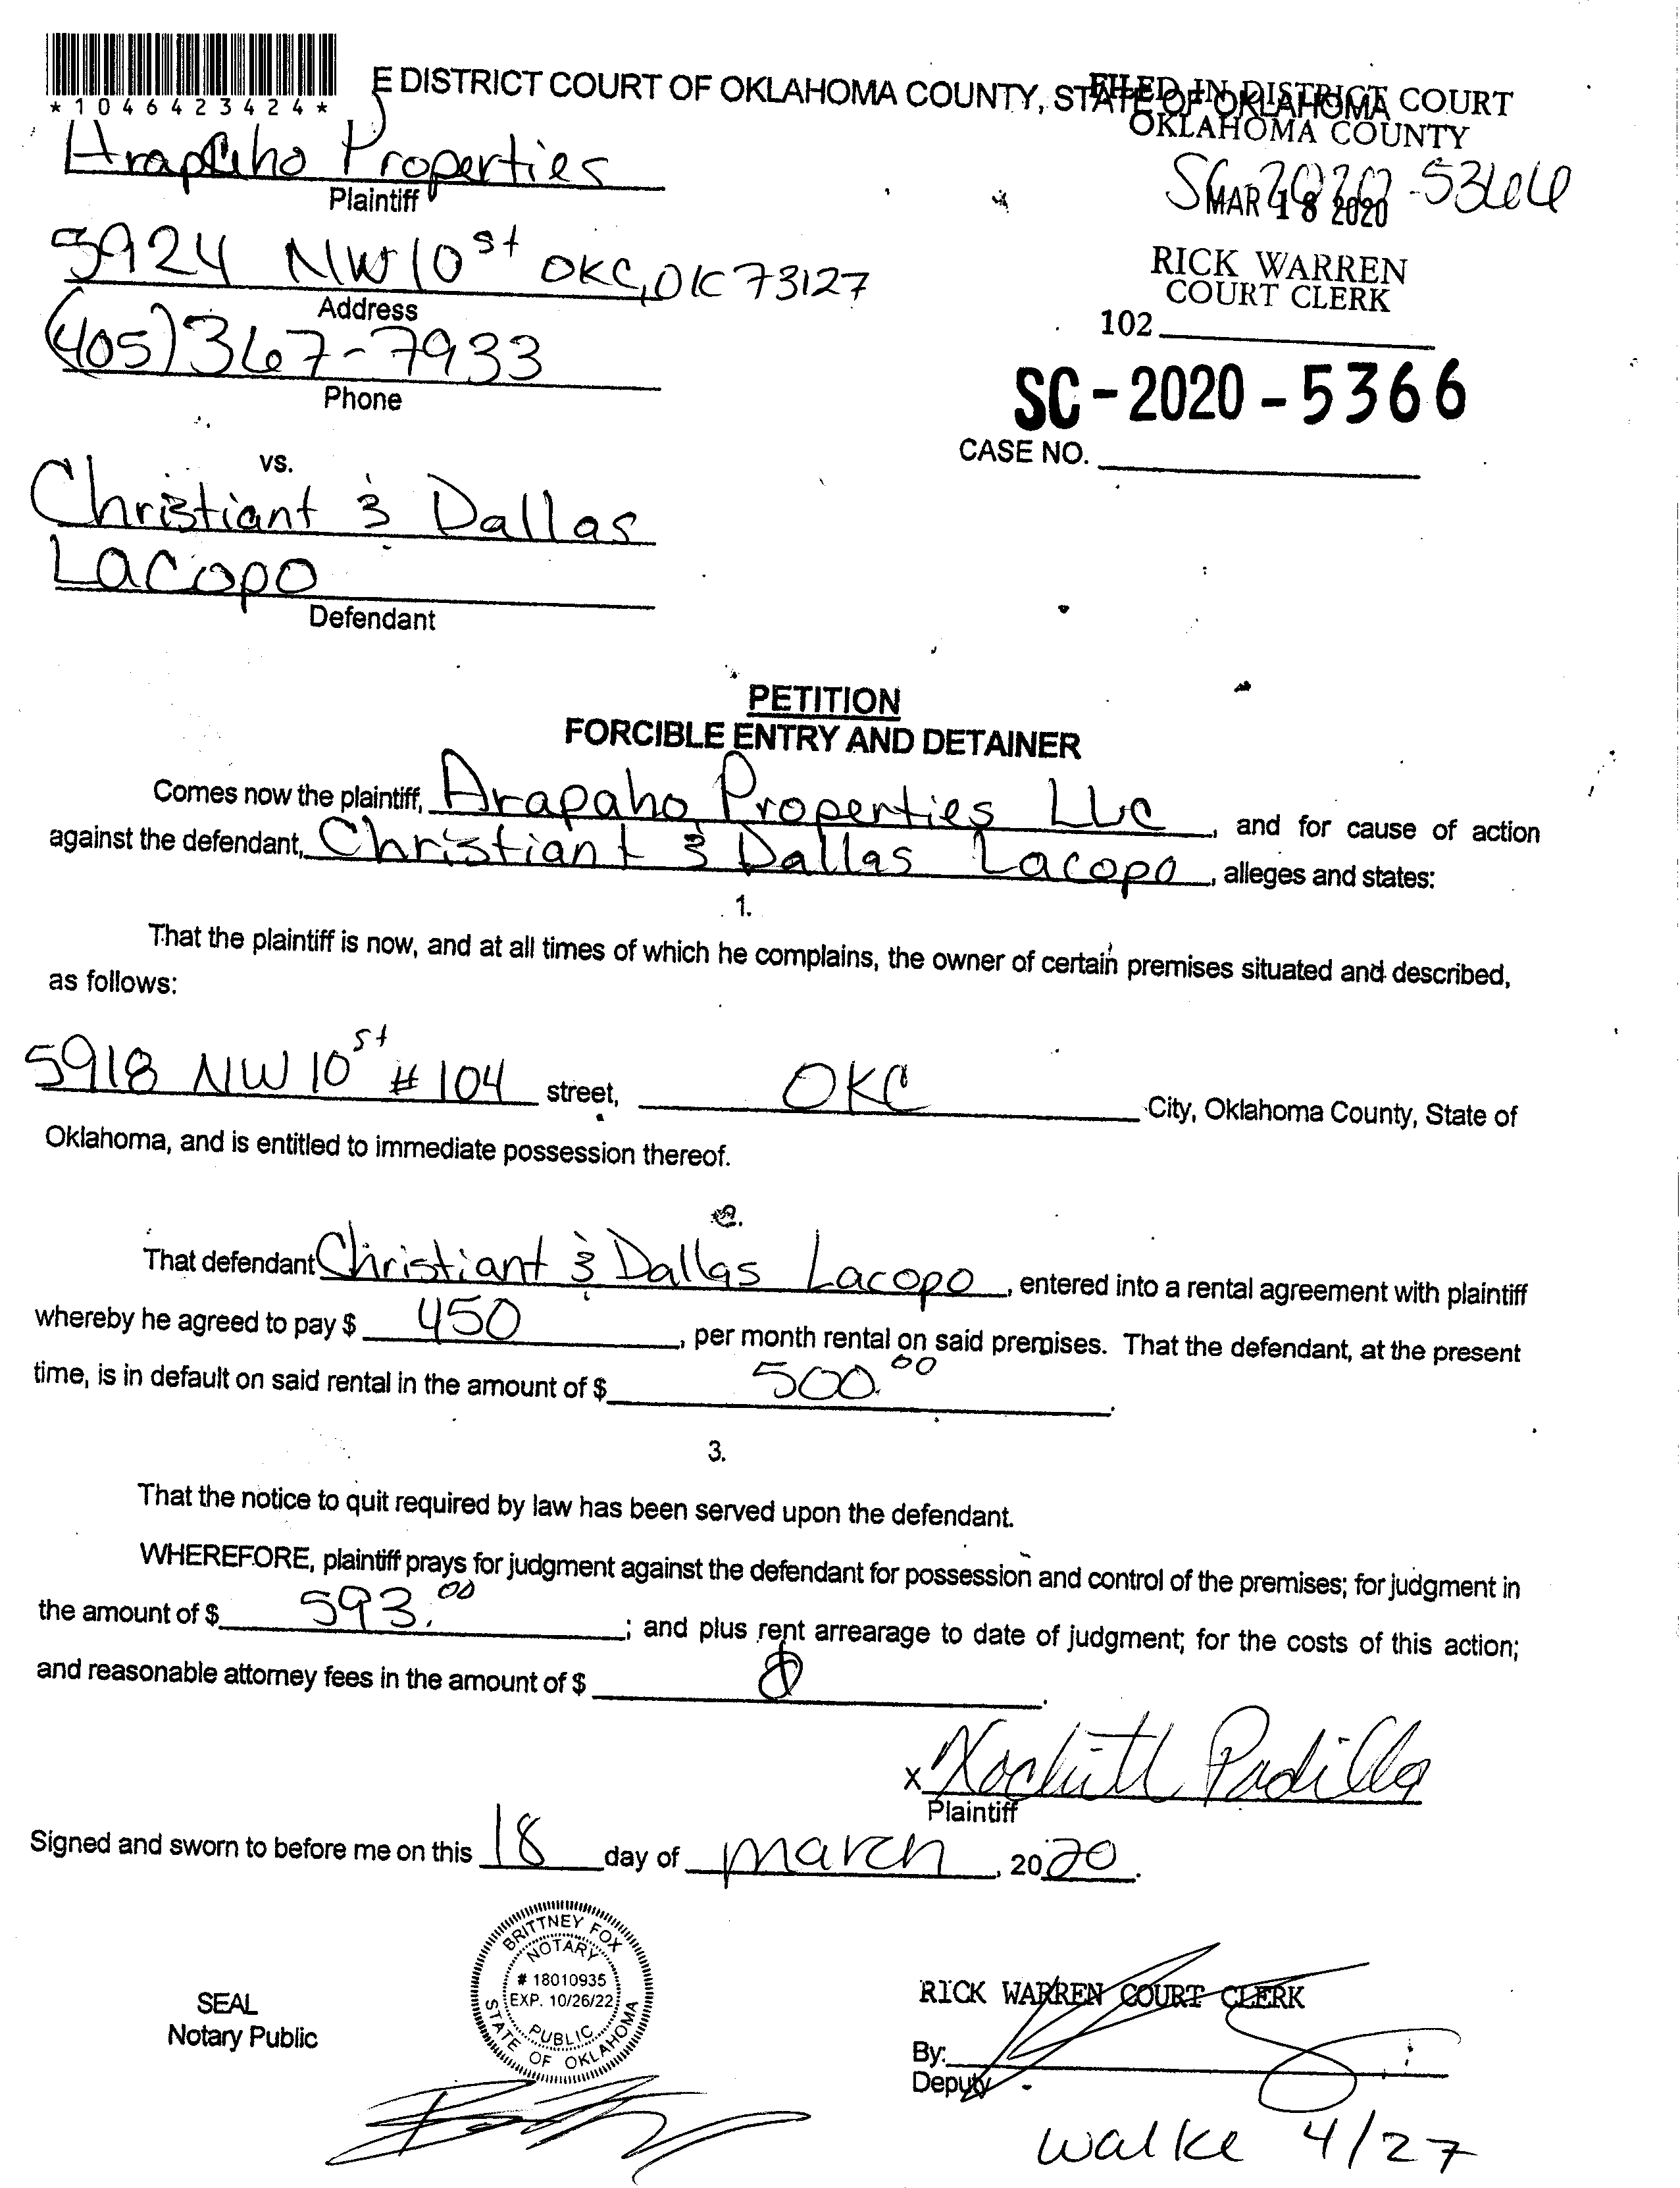 *1046423424*
E DISTRICT COURT OF OKLAHOMA COUNTY, STATE OF OKLAHOMA
FILED IN DISTRICT COURT
OKLAHOMA COUNTY
SC-2020-5366
MAR 18 2020
RICK WARREN
COURT CLERK
102
SC-2020-5366
CASE NO.
Arapaho Properties
Plaintiff
5924 NW 10 st OKC, OK 73127
Address
(405) 367-7933
Phone
vs.
Christiant & Dallas
Lacopo
Defendant
PETITION
FORCIBLE ENTRY AND DETAINER
Comes now the plaintiff, Arapaho Properties LLC, and for cause of action
against the defendant, Christiant & Dallas Lacopo, alleges and states:
1.
That the plaintiff is now, and at all times of which he complains, the owner of certain premises situated and described,
as follows:
5918 NW 10 st # 104 street, OKC City, Oklahoma County, State of
Oklahoma, and is entitled to immediate possession thereof.
2.
That defendant Christiant & Dallas Lacopo, entered into a rental agreement with plaintiff
whereby he agreed to pay $ 450, per month rental on said premises. That the defendant, at the present
time, is in default on said rental in the amount of $ 500.00.
3.
That the notice to quit required by law has been served upon the defendant.
WHEREFORE, plaintiff prays for judgment against the defendant for possession and control of the premises; for judgment in
the amount of $ 593.00; and plus rent arrearage to date of judgment; for the costs of this action;
and reasonable attorney fees in the amount of $
x Xochitl Padilla
Plaintiff
Signed and sworn to before me on this 18 day of march, 2020.
BRITTNEY FOX
NOTARY
# 18010935
EXP. 10/26/22
PUBLIC
STATE OF OKLAHOMA
SEAL
Notary Public
RICK WARREN COURT CLERK
By:
Deputy
walke 4/27